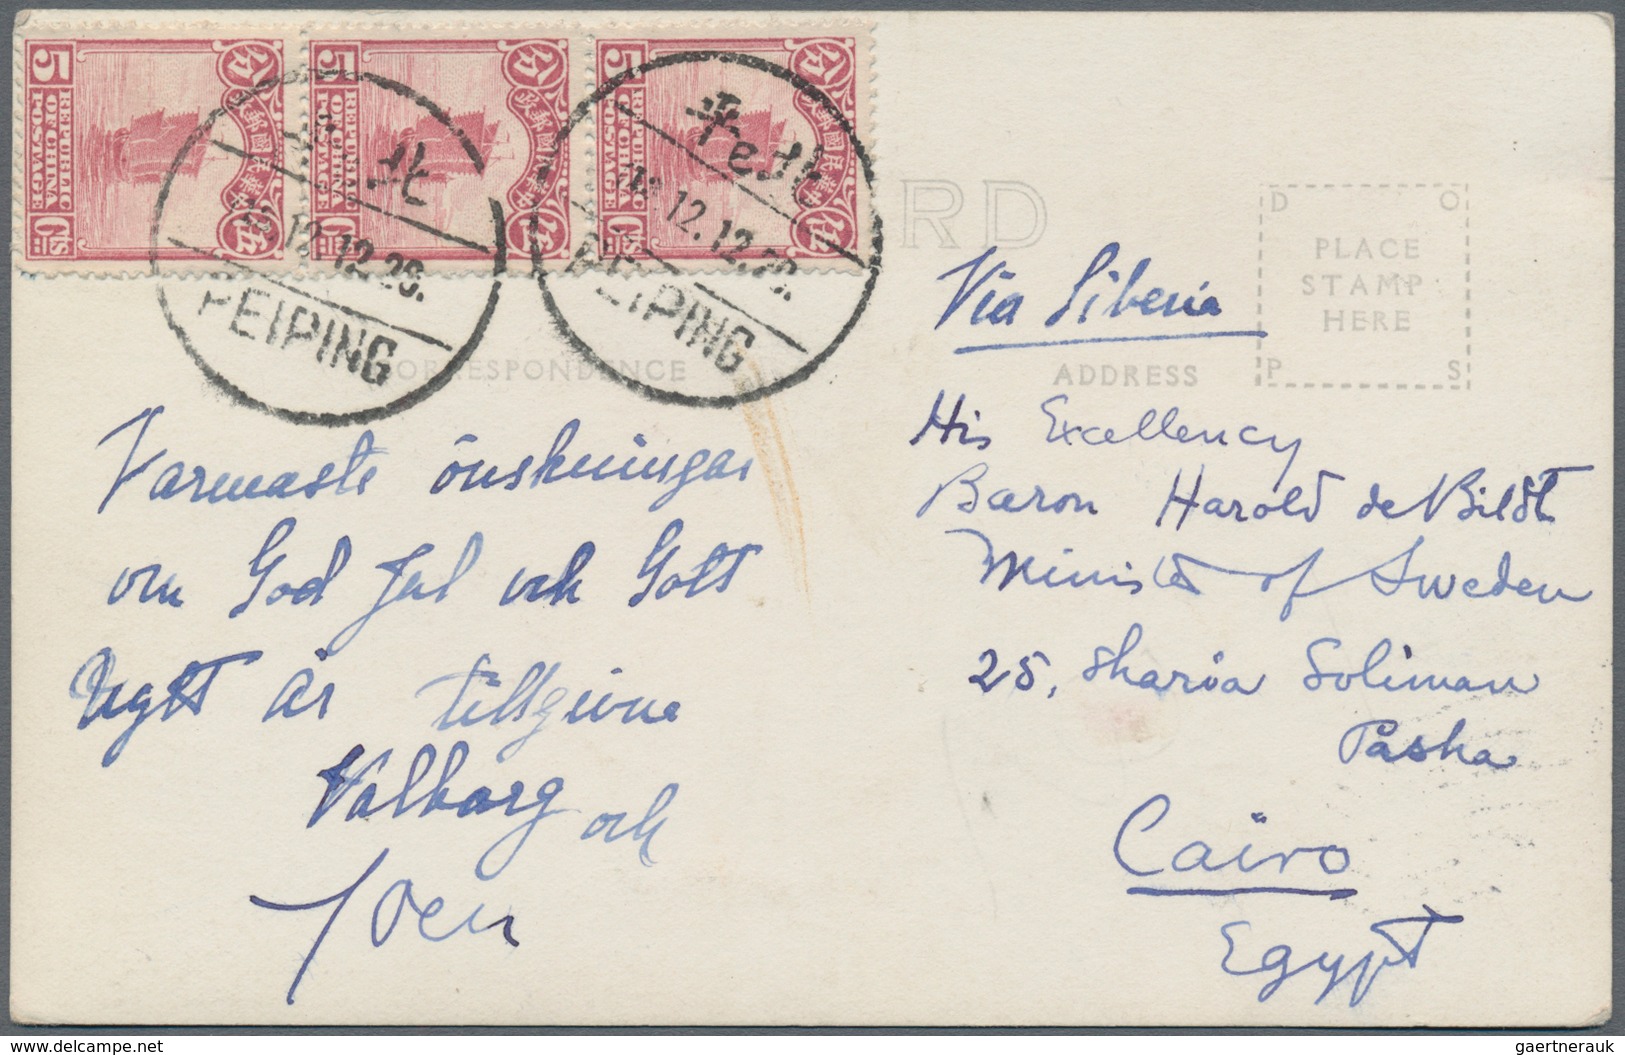 5 REPUBLIC OF CHINA POSTAGE Cts 中華民國郵政 伍 分
5 REPUBLIC OF CHINA POSTAGE Cts 中華民國郵政 伍 分
5 REPUBLIC OF CHINA POSTAGE Cts 中華民國郵政 伍 分
北平
12.12.29.
PEIPING
北平
12.12.29.
PEIPING
RD
CORRESPONDENCE
ADDRESS
PLACE
STAMP
HERE
D O
P S
Varmaste önskningar
om God Jul och Gott
Nytt År tillgivne
Valborg och
Via Siberia
His Excellency
Baron Harold de Bildt
Minister of Sweden
25, Sharia Soliman
Pasha
Cairo
Egypt
www.delcampe.net
gaertnerauk